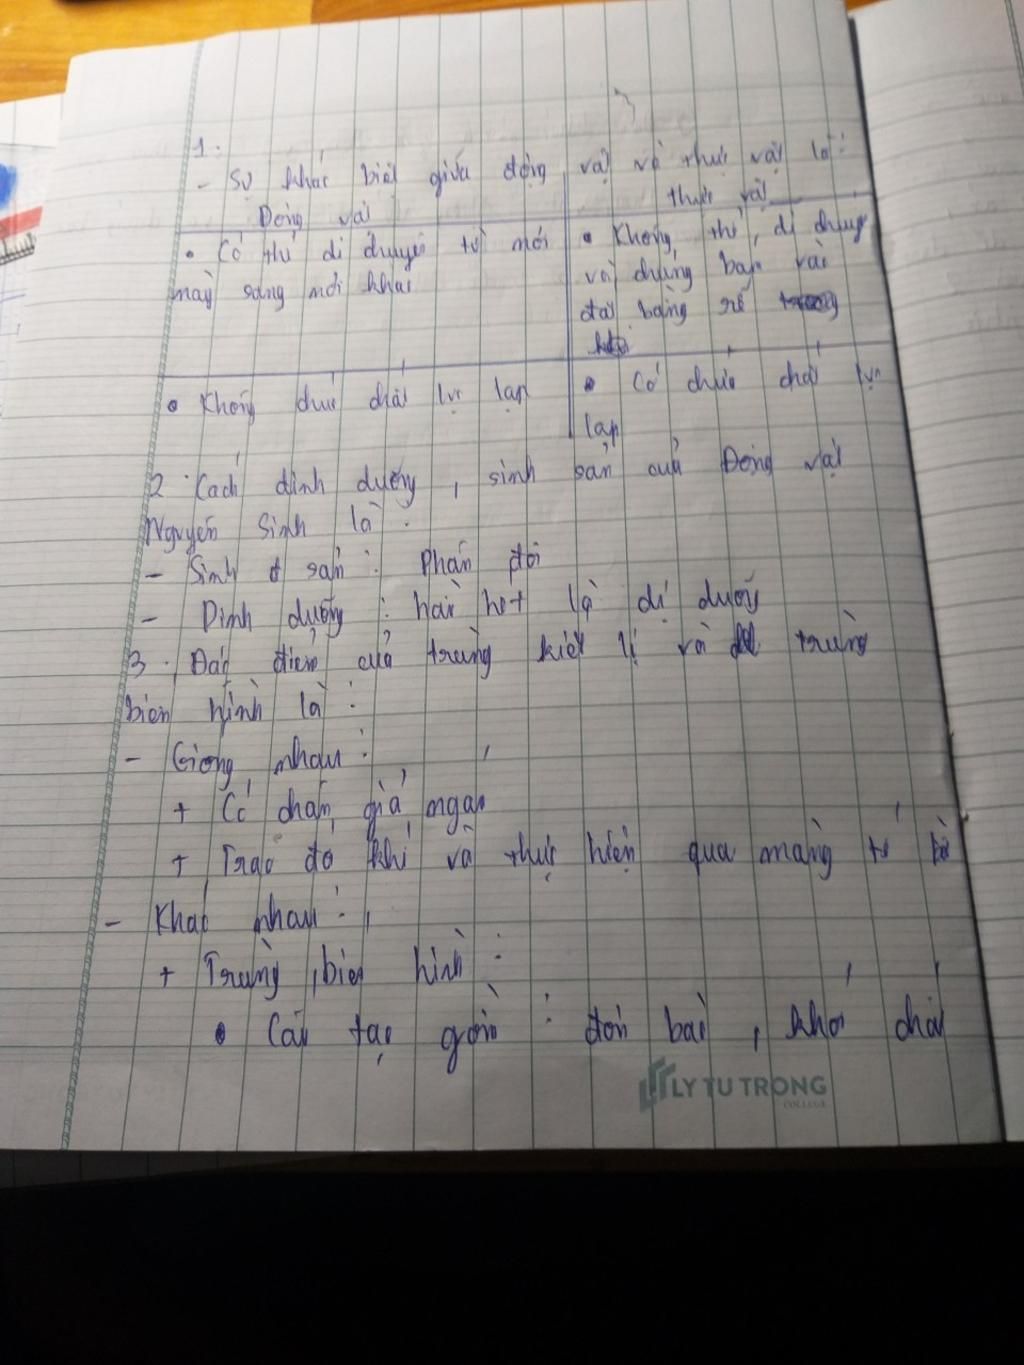 1:
- Sự khác biệt giữa động vật và thực vật là:
Động vật
thực vật
• Có thể di chuyển từ nơi
này sang nơi khác
• Không thể di chuyển
vì chúng bám vào
đất bằng rễ
• Không chứa chất lục lạp
• Có chứa chất lục
lạp
2. Cách dinh dưỡng, sinh sản của Động vật
Nguyên Sinh là:
- Sinh sản: Phân đôi
- Dinh dưỡng: hầu hết là dị dưỡng
3. Đặc điểm của trùng kiết lị và trùng
biến hình là:
- Giống nhau:
+ Có chân giả ngắn
+ Trao đổi khí và thực hiện qua màng tế bà
- Khác nhau:
+ Trùng biến hình:
• Cấu tạo gồm: đơn bào, khối chất
LY TU TRONG
COLLEGE